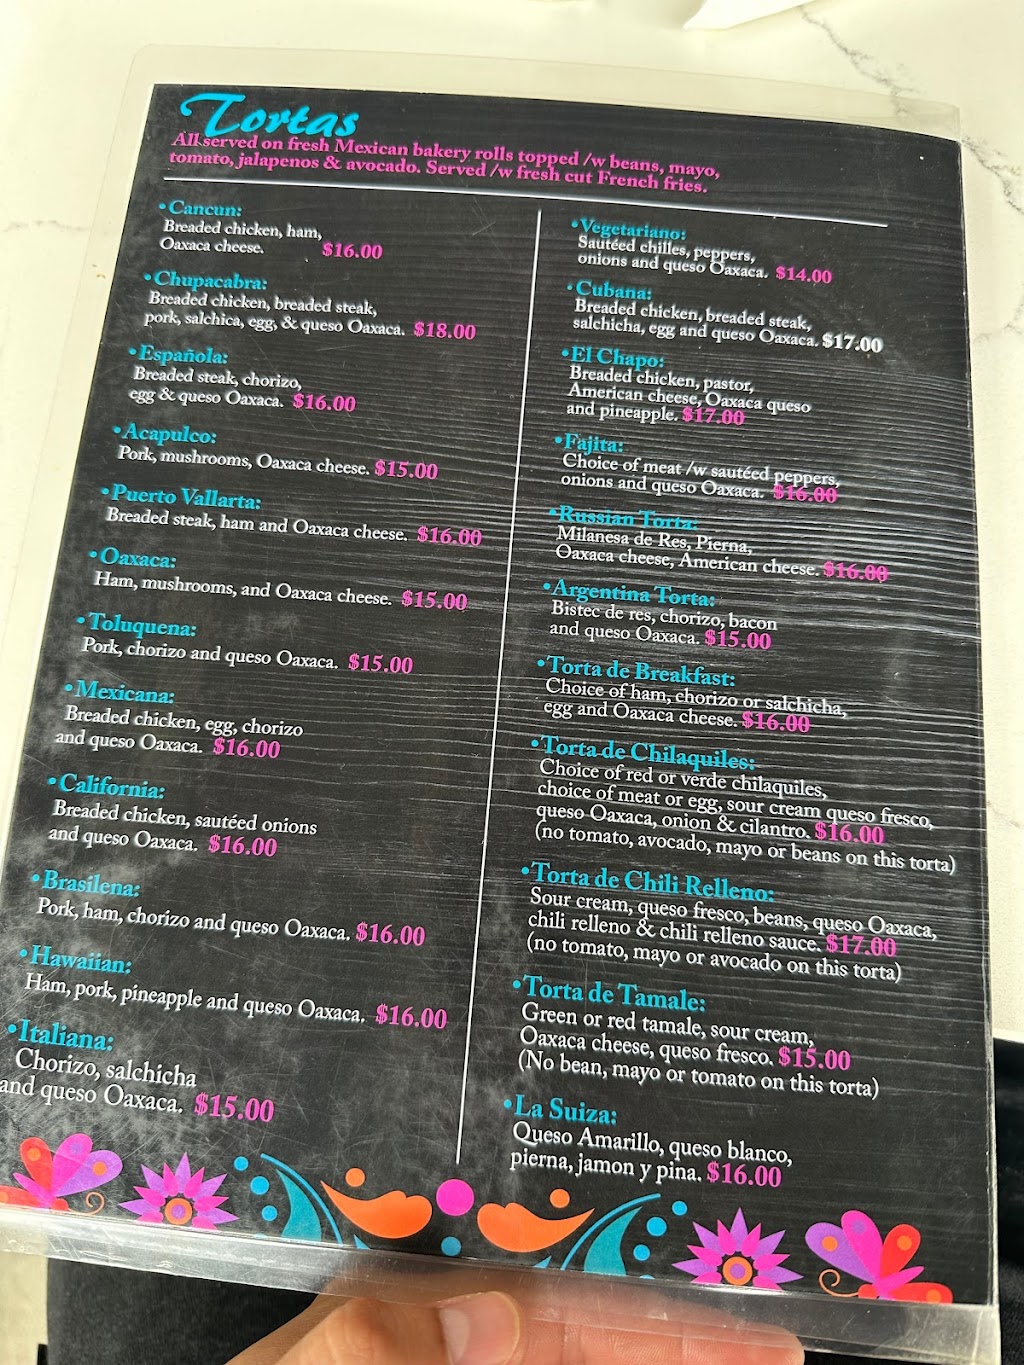 Tortas
All served on fresh Mexican bakery rolls topped /w beans, mayo,
tomato, jalapenos & avocado. Served /w fresh cut French fries.
•Cancun:
Breaded chicken, ham,
Oaxaca cheese. $16.00
•Chupacabra:
Breaded chicken, breaded steak,
pork, salchica, egg, & queso Oaxaca. $18.00
•Española:
Breaded steak, chorizo,
egg & queso Oaxaca. $16.00
•Acapulco:
Pork, mushrooms, Oaxaca cheese. $15.00
•Puerto Vallarta:
Breaded steak, ham and Oaxaca cheese. $16.00
•Oaxaca:
Ham, mushrooms, and Oaxaca cheese. $15.00
•Toluquena:
Pork, chorizo and queso Oaxaca. $15.00
•Mexicana:
Breaded chicken, egg, chorizo
and queso Oaxaca. $16.00
•California:
Breaded chicken, sautéed onions
and queso Oaxaca. $16.00
•Brasilena:
Pork, ham, chorizo and queso Oaxaca. $16.00
•Hawaiian:
Ham, pork, pineapple and queso Oaxaca. $16.00
•Italiana:
Chorizo, salchicha
and queso Oaxaca. $15.00
•Vegetariano:
Sautéed chilles, peppers,
onions and queso Oaxaca. $14.00
•Cubana:
Breaded chicken, breaded steak,
salchicha, egg and queso Oaxaca. $17.00
•El Chapo:
Breaded chicken, pastor,
American cheese, Oaxaca queso
and pineapple. $17.00
•Fajita:
Choice of meat /w sautéed peppers,
onions and queso Oaxaca. $16.00
•Russian Torta:
Milanesa de Res, Pierna,
Oaxaca cheese, American cheese. $16.00
•Argentina Torta:
Bistec de res, chorizo, bacon
and queso Oaxaca. $15.00
•Torta de Breakfast:
Choice of ham, chorizo or salchicha,
egg and Oaxaca cheese. $16.00
•Torta de Chilaquiles:
Choice of red or verde chilaquiles,
choice of meat or egg, sour cream queso fresco,
queso Oaxaca, onion & cilantro. $16.00
(no tomato, avocado, mayo or beans on this torta)
•Torta de Chili Relleno:
Sour cream, queso fresco, beans, queso Oaxaca,
chili relleno & chili relleno sauce. $17.00
(no tomato, mayo or avocado on this torta)
•Torta de Tamale:
Green or red tamale, sour cream,
Oaxaca cheese, queso fresco. $15.00
(No bean, mayo or tomato on this torta)
•La Suiza:
Queso Amarillo, queso blanco,
pierna, jamon y pina. $16.00